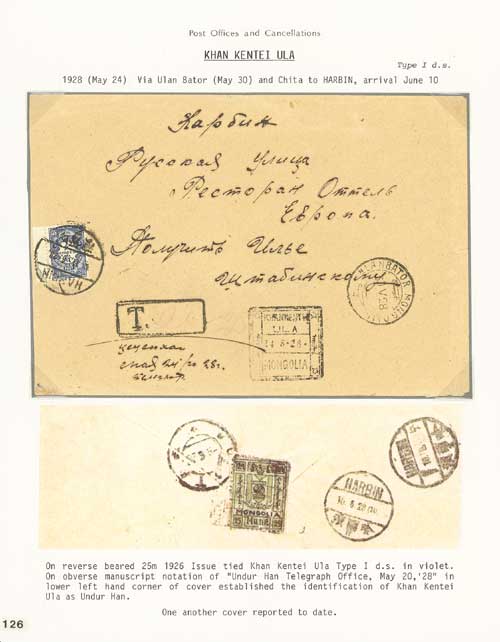 Post Offices and Cancellations
KHAN KENTEI ULA
Type I d.s.
1928 (May 24) Via Ulan Bator (May 30) and Chita to HARBIN, arrival June 10
Харбин
Русская улица
Ресторан Оттель
Европа.
Получить Илье
Штабинскому
HARBIN
ULANBATOR MONGOLIA
T.
ULA
MONGOLIA
HARBIN
MONGOLIA
25 Mung
HARBIN
10.6.28
On reverse beared 25m 1926 Issue tied Khan Kentei Ula Type I d.s. in violet.
On obverse manuscript notation of "Undur Han Telegraph Office, May 20,'28" in
lower left hand corner of cover established the identification of Khan Kentei
Ula as Undur Han.
One another cover reported to date.
126